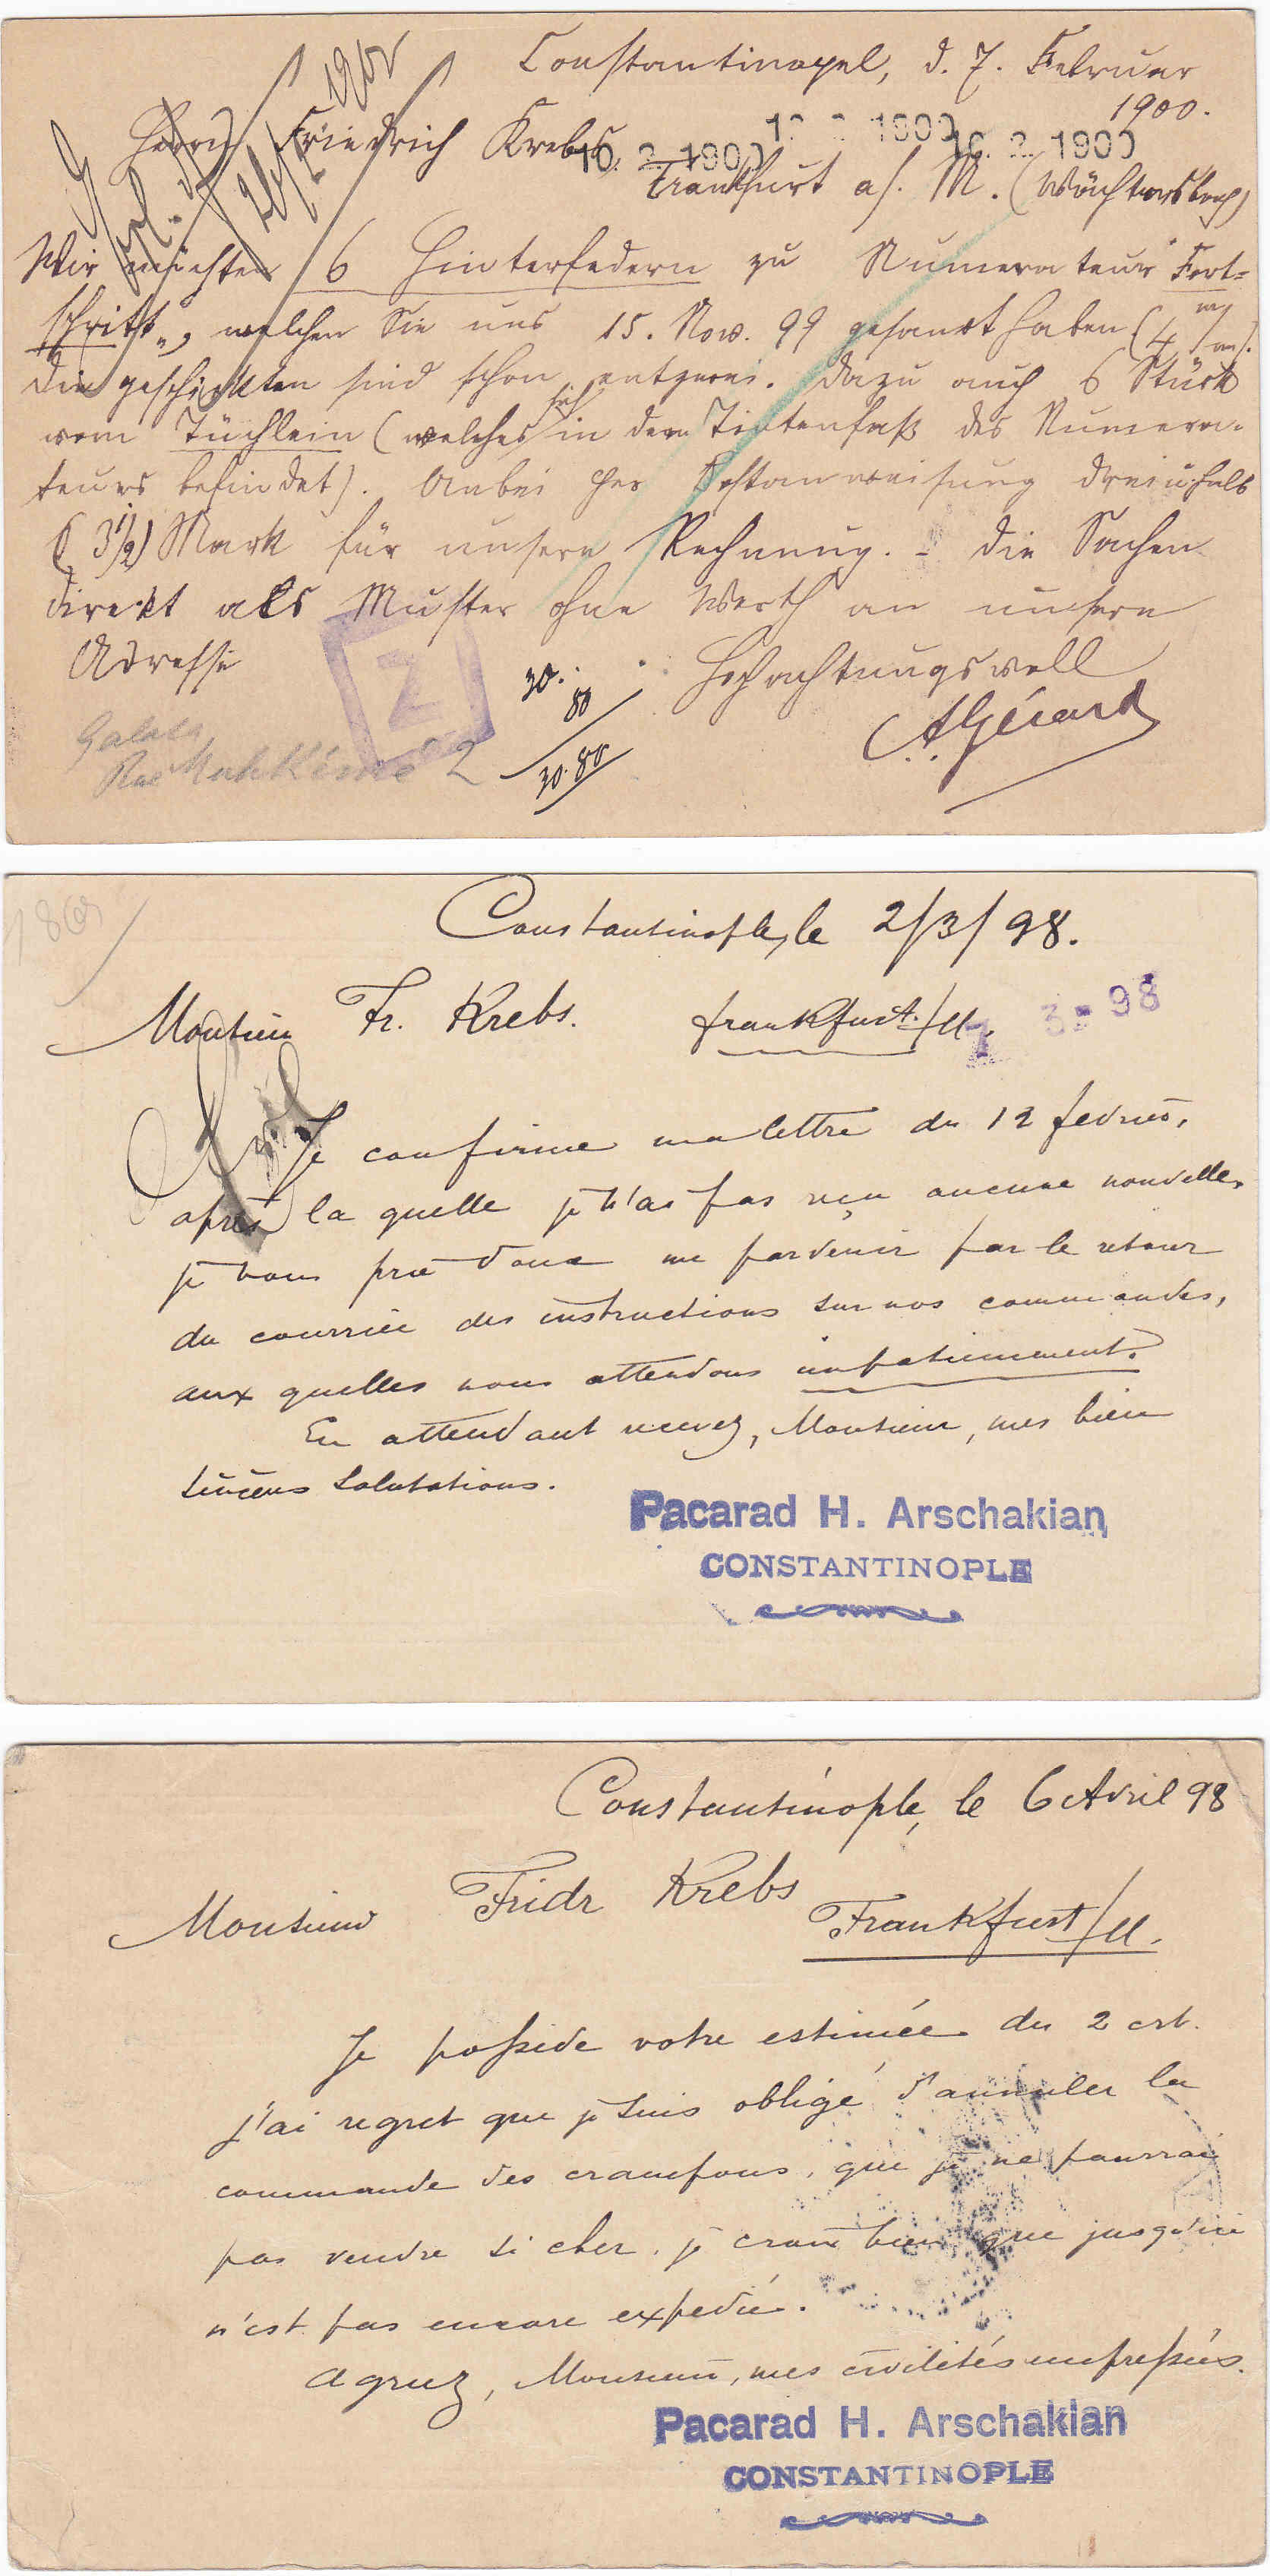 Constantinopel, d. 7. Februar
1900.
Herrn Friedrich Krebs,
10. 2. 1900
10. 2. 1900
10. 2. 1900
Frankfurt a/. M. (Wächtersbach)
Wir möchten 6 Hinterfedern zu Numerateur "Fort=
schritt", welchen Sie uns 15. Nov. 99 gesandt haben (4 m/m).
Die geschickten sind schon entzwei. Dazu auch 6 Stück
vom Tüchlein (welches sich in dem Tintenfaß des Numera-
teurs befindet). Anbei per Postanweisung dreiuhalb
(3 1/2) Mark für unsere Rechnung. - Die Sachen
direkt als Muster ohne Werth an unsere
Adresse
Hochachtungsvoll
A. Gérard
Galata,
Rue Mahkémé 2
Z
30.
80
30.80
Constantinople, le 2/3/98.
Monsieur Fr. Krebs. Frankfurt/M.
7 3- 98
Je confirme ma lettre du 12 fevrier,
après la quelle je n'ai pas reçu aucune nouvelle,
je vous prie donc me parvenir par le retour
du courrier des instructions sur nos commandes,
aux quelles nous attendons impatiemment.
En attendant recevez, Monsieur, mes bien
sincères salutations.
Pacarad H. Arschakian
CONSTANTINOPLE
Constantinople, le 6 Avril 98
Monsieur Fridr Krebs
Frankfurt/M.
Je possède votre estimée du 2 crt.
j'ai regret que je suis obligé d'annuler la
commande des crampons, que je ne pourrai
pas vendre si cher. je crois bien que jusqu'ici
n'est pas encore expedié.
Agreez, Monsieur, mes civilités empressées.
Pacarad H. Arschakian
CONSTANTINOPLE